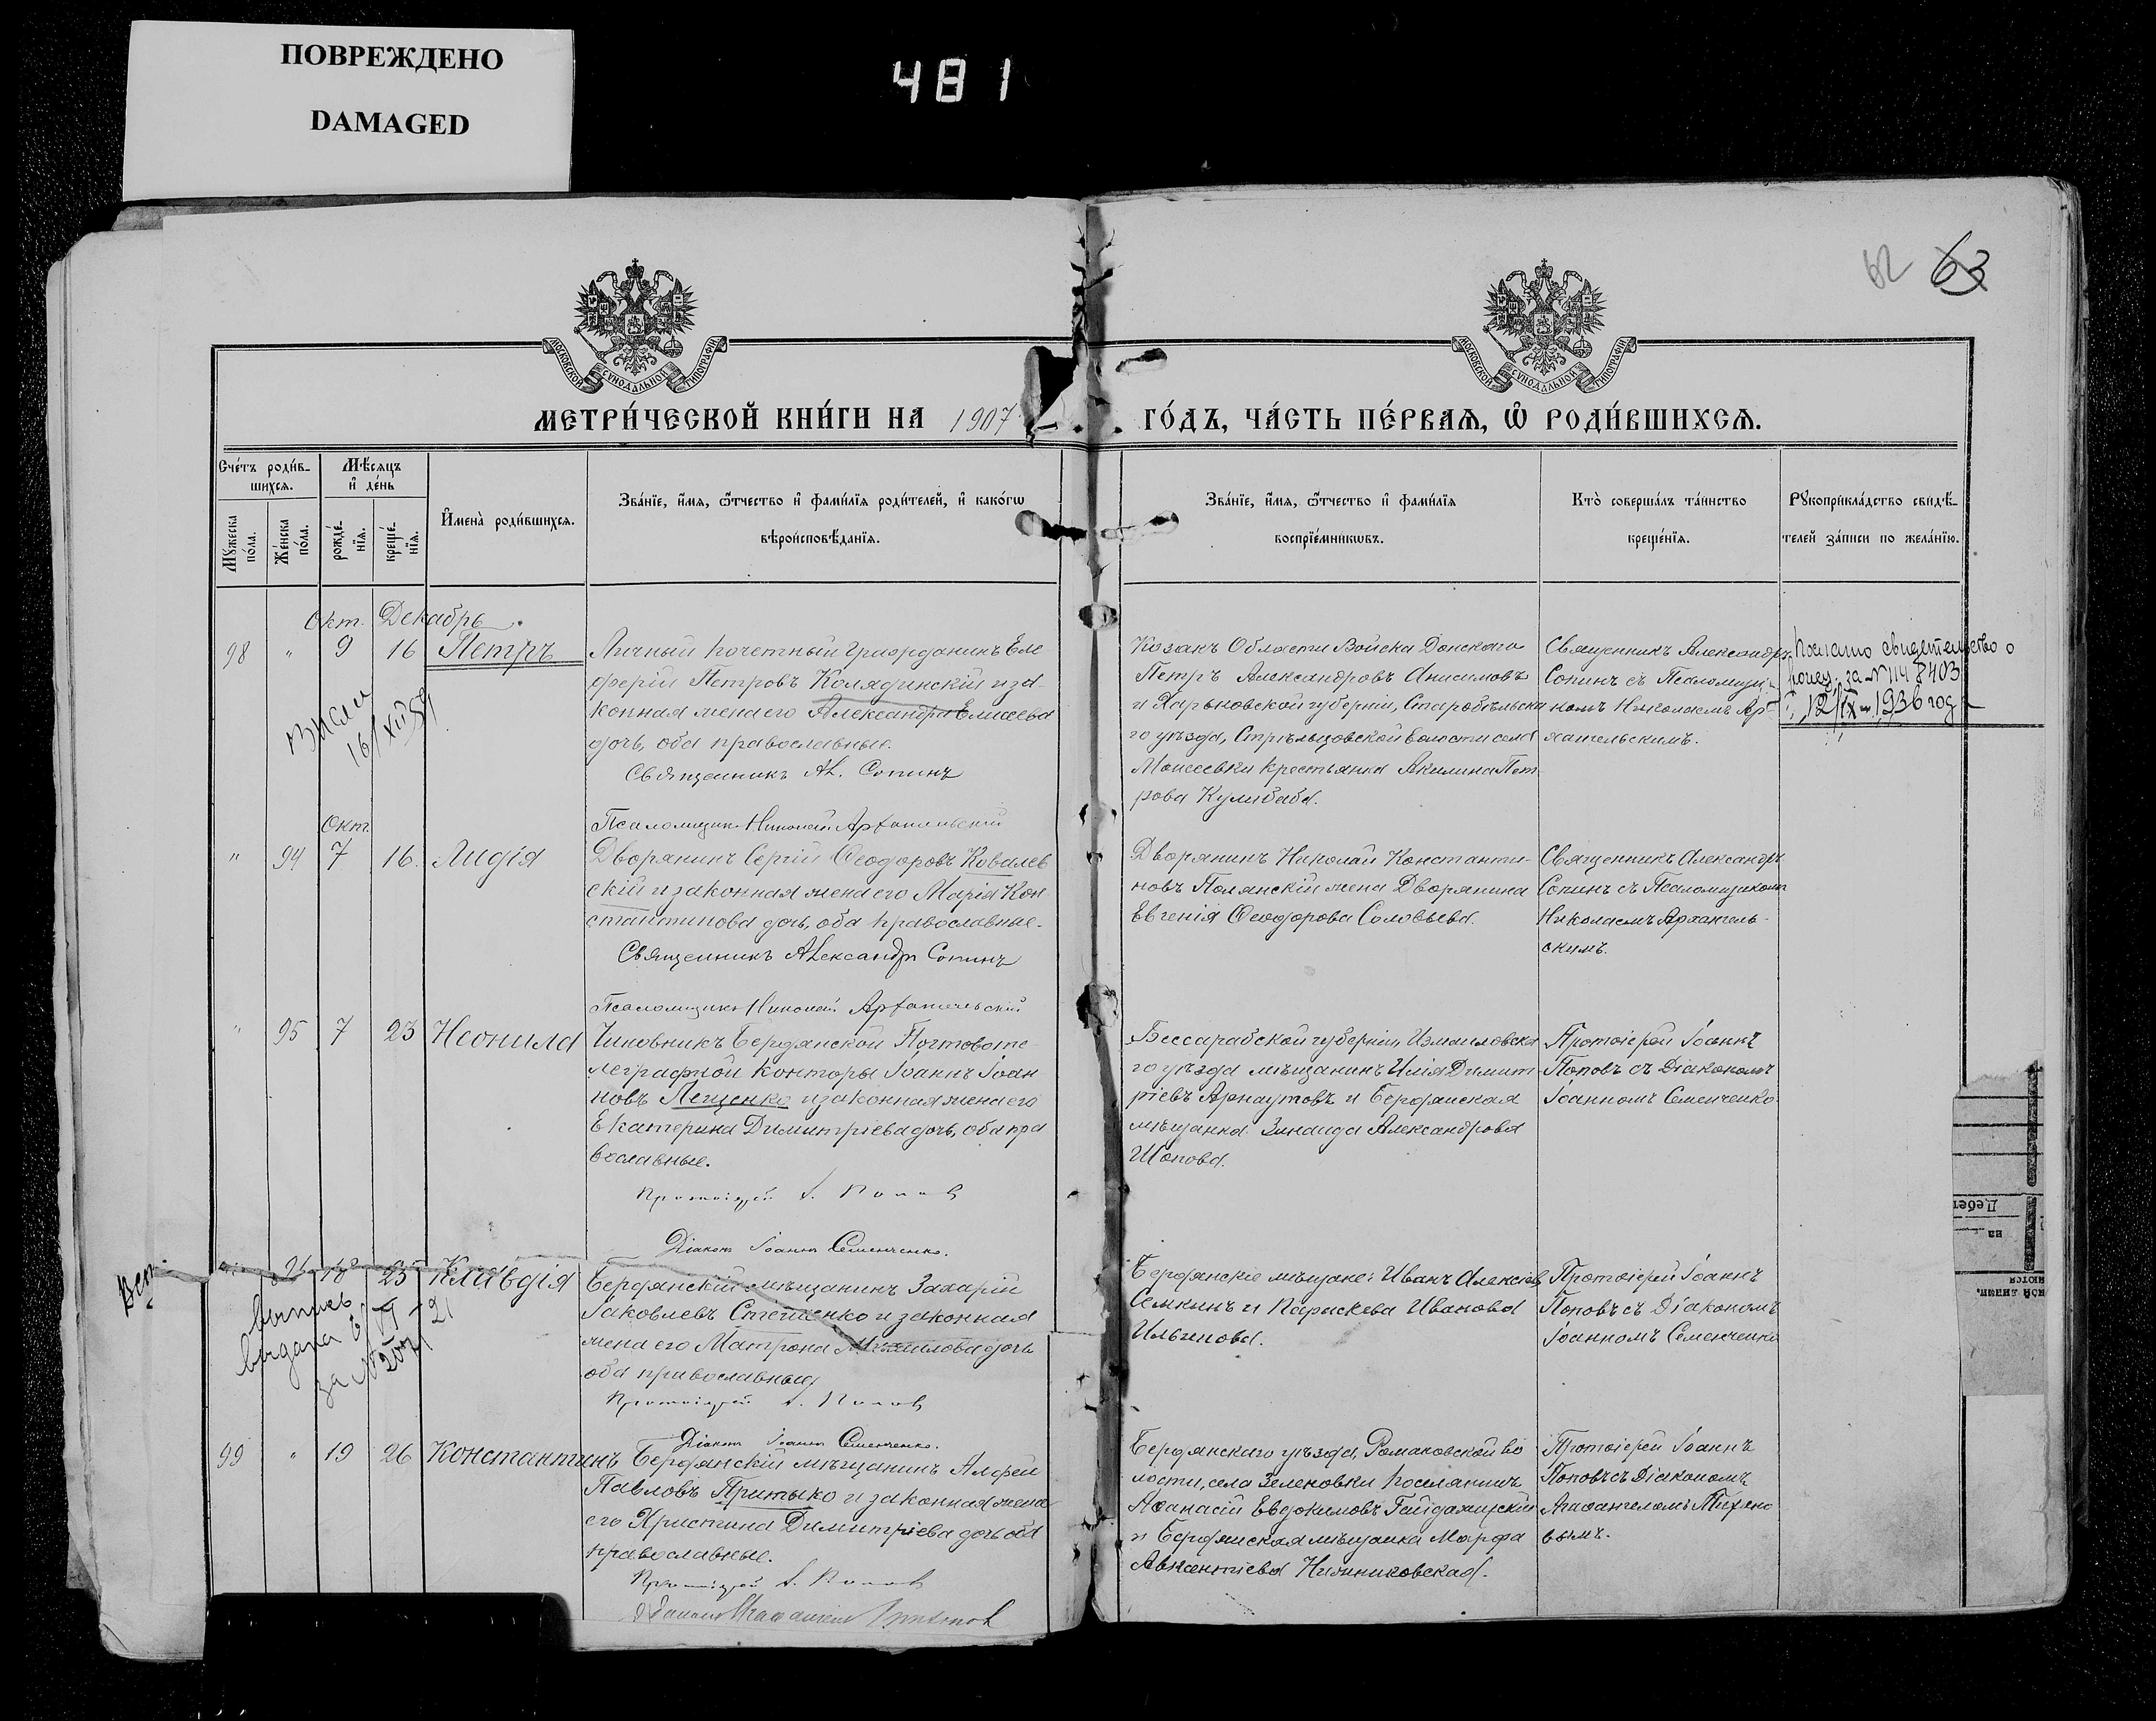 ПОВРЕЖДЕНО
DAMAGED
481
62 63
МОСКОВСКОЙ СѴНОДАЛЬНОЙ ТИПОГРАФІИ
МОСКОВСКОЙ СѴНОДАЛЬНОЙ ТИПОГРАФІИ
МЕТРИ́ЧЕСКОЙ КНИ́ГИ НА 1907
ГО́ДЪ, ЧА́СТЬ ПЕ́РВАѦ, Ѽ РОДИ́ВШИХСѦ.
Сче́тъ роди́в-
шихсѧ.
Мꙋжеска по́ла.
Же́нска по́ла.
Мѣ́сѧцъ
и҆ де́нь
рожде́-
нїѧ.
креще́-
нїѧ.
И҆мена̀ роди́вшихсѧ.
Зва́нїе, и҆́мѧ, ѻ҆́тчество и҆ фами́лїѧ роди́телей, и҆ како́гѡ
вѣроисповѣ́данїѧ.
Зва́нїе, и҆́мѧ, ѻ҆́тчество и҆ фами́лїѧ
воспрїе́мникѡвъ.
Кто̀ соверша́лъ та́инство
креще́нїѧ.
Рꙋкоприкла́дство свидѣ́-
телей за́писи по жела́нїю.
Окт. Декабрь.
98 " 9 16 Петръ
Личный почетный гражданинъ Еле
ферій Петровъ Колядинскій и за-
конная жена его Александра Елисеева
дочь, оба православные.
Священникъ Ал. Сопинъ
Псаломщикъ Николай Архангельскій
Козакъ Области Войска Донскаго
Петръ Александровъ Анисимовъ
и Харьковской губерніи, Старобѣльска
го уѣзда, Стрѣльцовской волости села
Моисеевки крестьянка Акилина Пет-
рова Кулибаба.
Священникъ Александръ
Сопинъ съ Псаломщи-
комъ Николаемъ Ар-
хангельскимъ.
свидетельство о
за №1148403
12/IX 1936 год
16/XII
Окт.
" 94 7 16. Лидія
Дворянинъ Сергій Ѳеодоровъ Ковалев
скій и законная жена его Марія Кон
стантинова дочь, оба православные.
Священникъ Александръ Сопинъ
Псаломщикъ Николай Архангельскій
Дворянинъ Николай Константи-
новъ Полянскій жена Дворянина
Евгенія Ѳеодорова Соловьева.
Священникъ Александръ
Сопинъ съ Псаломщикомъ
Николаемъ Архангель-
скимъ.
" 95 7 23 Неонила
Чиновникъ Бердянской Почтовоте-
леграфной Конторы Іоаннъ Іоан
новъ Лещенко и законная жена его
Екатерина Димитріева дочь, оба пра
вославные.
Протоіерей І. Поповъ
Діаконъ Іоаннъ Семенченко.
Бессарабской губерніи, Измаиловска
го уѣзда мѣщанинъ Илія Димит
ріевъ Арнаутовъ и Бердянская
мѣщанка Зинаида Александрова
Шопова.
Протоіерей Іоаннъ
Поповъ съ Діакономъ
Іоанномъ Семенченко.
96 18 25 Клавдія
выпись
выдана
за №
Бердянскій мѣщанинъ Захарій
Іаковлевъ Стешенко и законная
жена его Матрона Михаилова дочь
оба православные,
Протоіерей І. Поповъ
Діаконъ Іоаннъ Семенченко.
Бердянскіе мѣщане: Иванъ Алексіев
Семкинъ и Параскева Иванова
Ильинова.
Протоіерей Іоаннъ
Поповъ съ Діакономъ
Іоанномъ Семенченко
99 " 19 26 Константинъ
Бердянскій мѣщанинъ Алфей
Павловъ Притыко и законная жена
его Христина Димитріева дочь оба
православные.
Протоіерей І. Поповъ
Бердянскаго уѣзда, Романовской во
лости, села Зеленовки поселянинъ
Аѳанасій Евдокимовъ Гайдамирскій
и Бердянская мѣщанка Марфа
Авксентіева Нижниковская.
Протоіерей Іоаннъ
Поповъ съ Діакономъ
Агаѳангеломъ Тихоно
вымъ.
Дебет
на